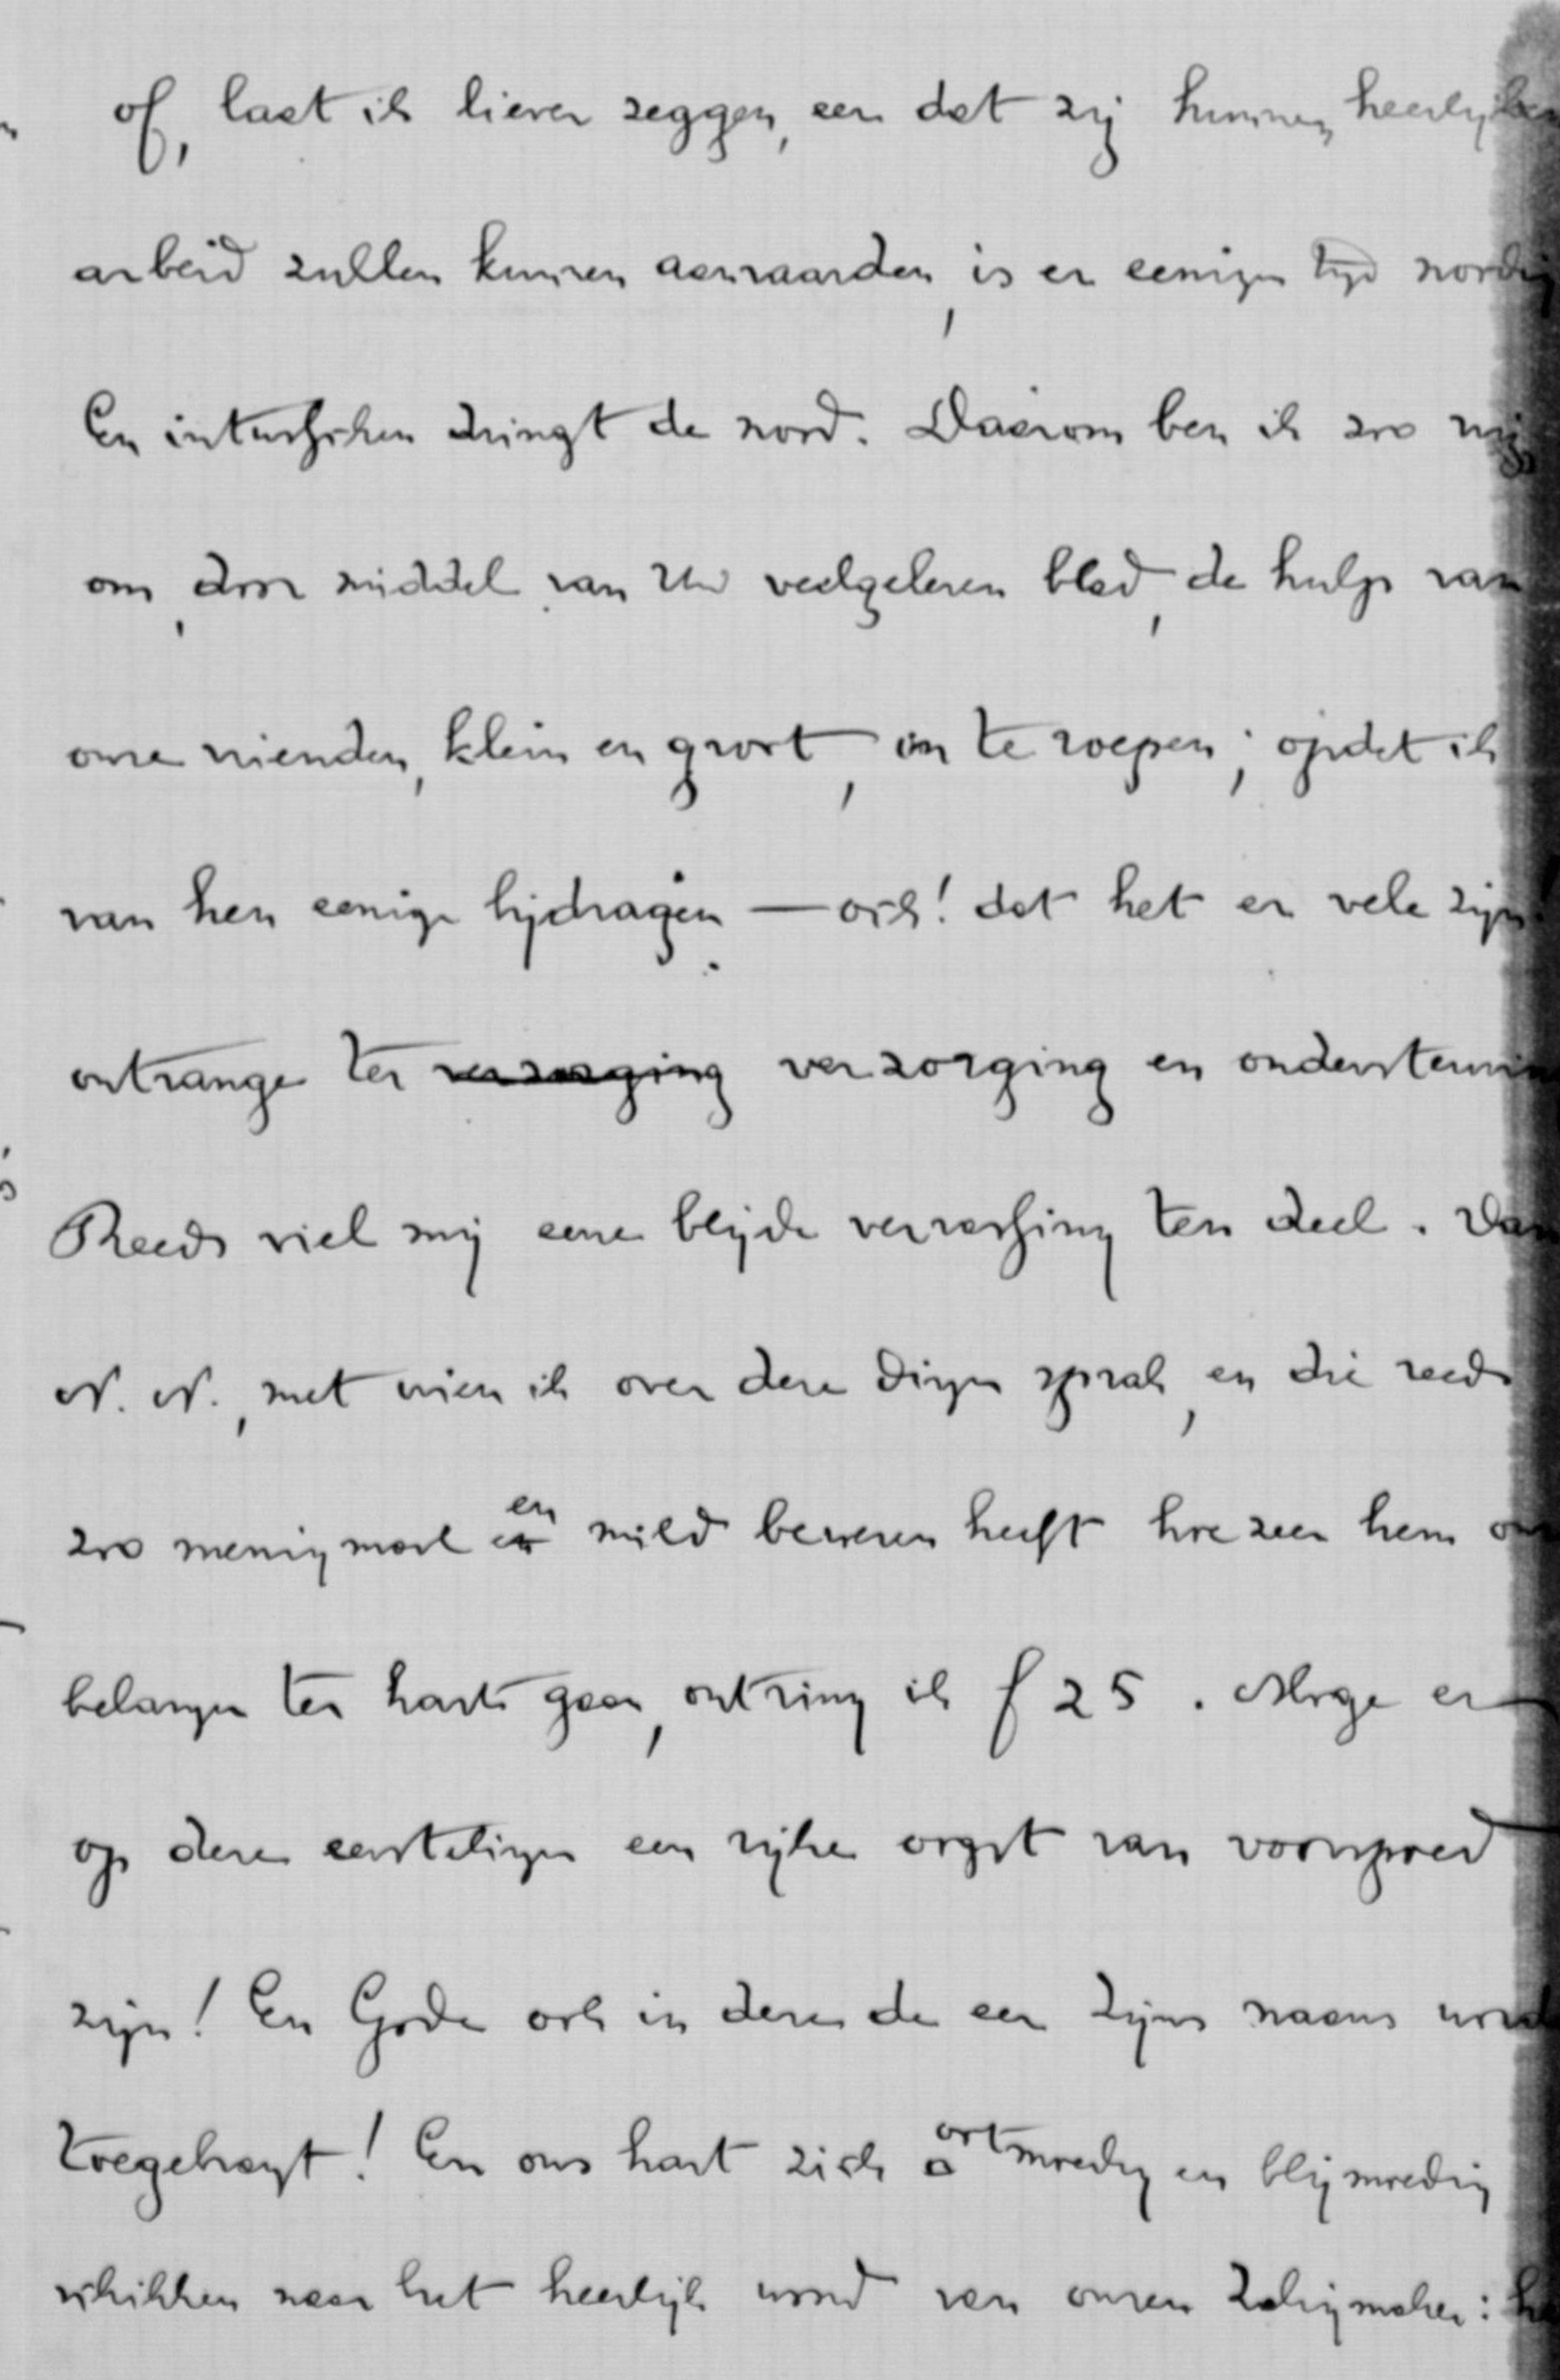 of, laat ik liever zeggen, eer dat zij hunnen heerlijken
arbeid zullen kunnen aanvaarden, is er eenigen tijd noodig
En intusschen dringt de nood. Daarom ben ik zoo vrij
om, door middel van Uw veelgelezen blad, de hulp van
onze vrienden, klein en groot, in te roepen; opdat ik
van hen eenige bijdragen — och! dat het er vele zijn!
ontvange ter verzorging verzorging en ondersteuning
Reeds viel mij eene blijde verrassing ten deel. Van
N. N., met wien ik over deze dingen sprak, en die reeds
zoo menigmaal en mild bewezen heeft hoe zeer hem onze
belangen ter harte gaan, ontving ik f 25. Moge er
op deze eerstelingen een rijke oogst van voorspoed
zijn! En Gode ook in deze de eer Zijns naams worde
toegebragt! En ons hart zich ootmoedig en blijmoedig
schikken naar het heerlijk woord van onzen Zaligmaker: